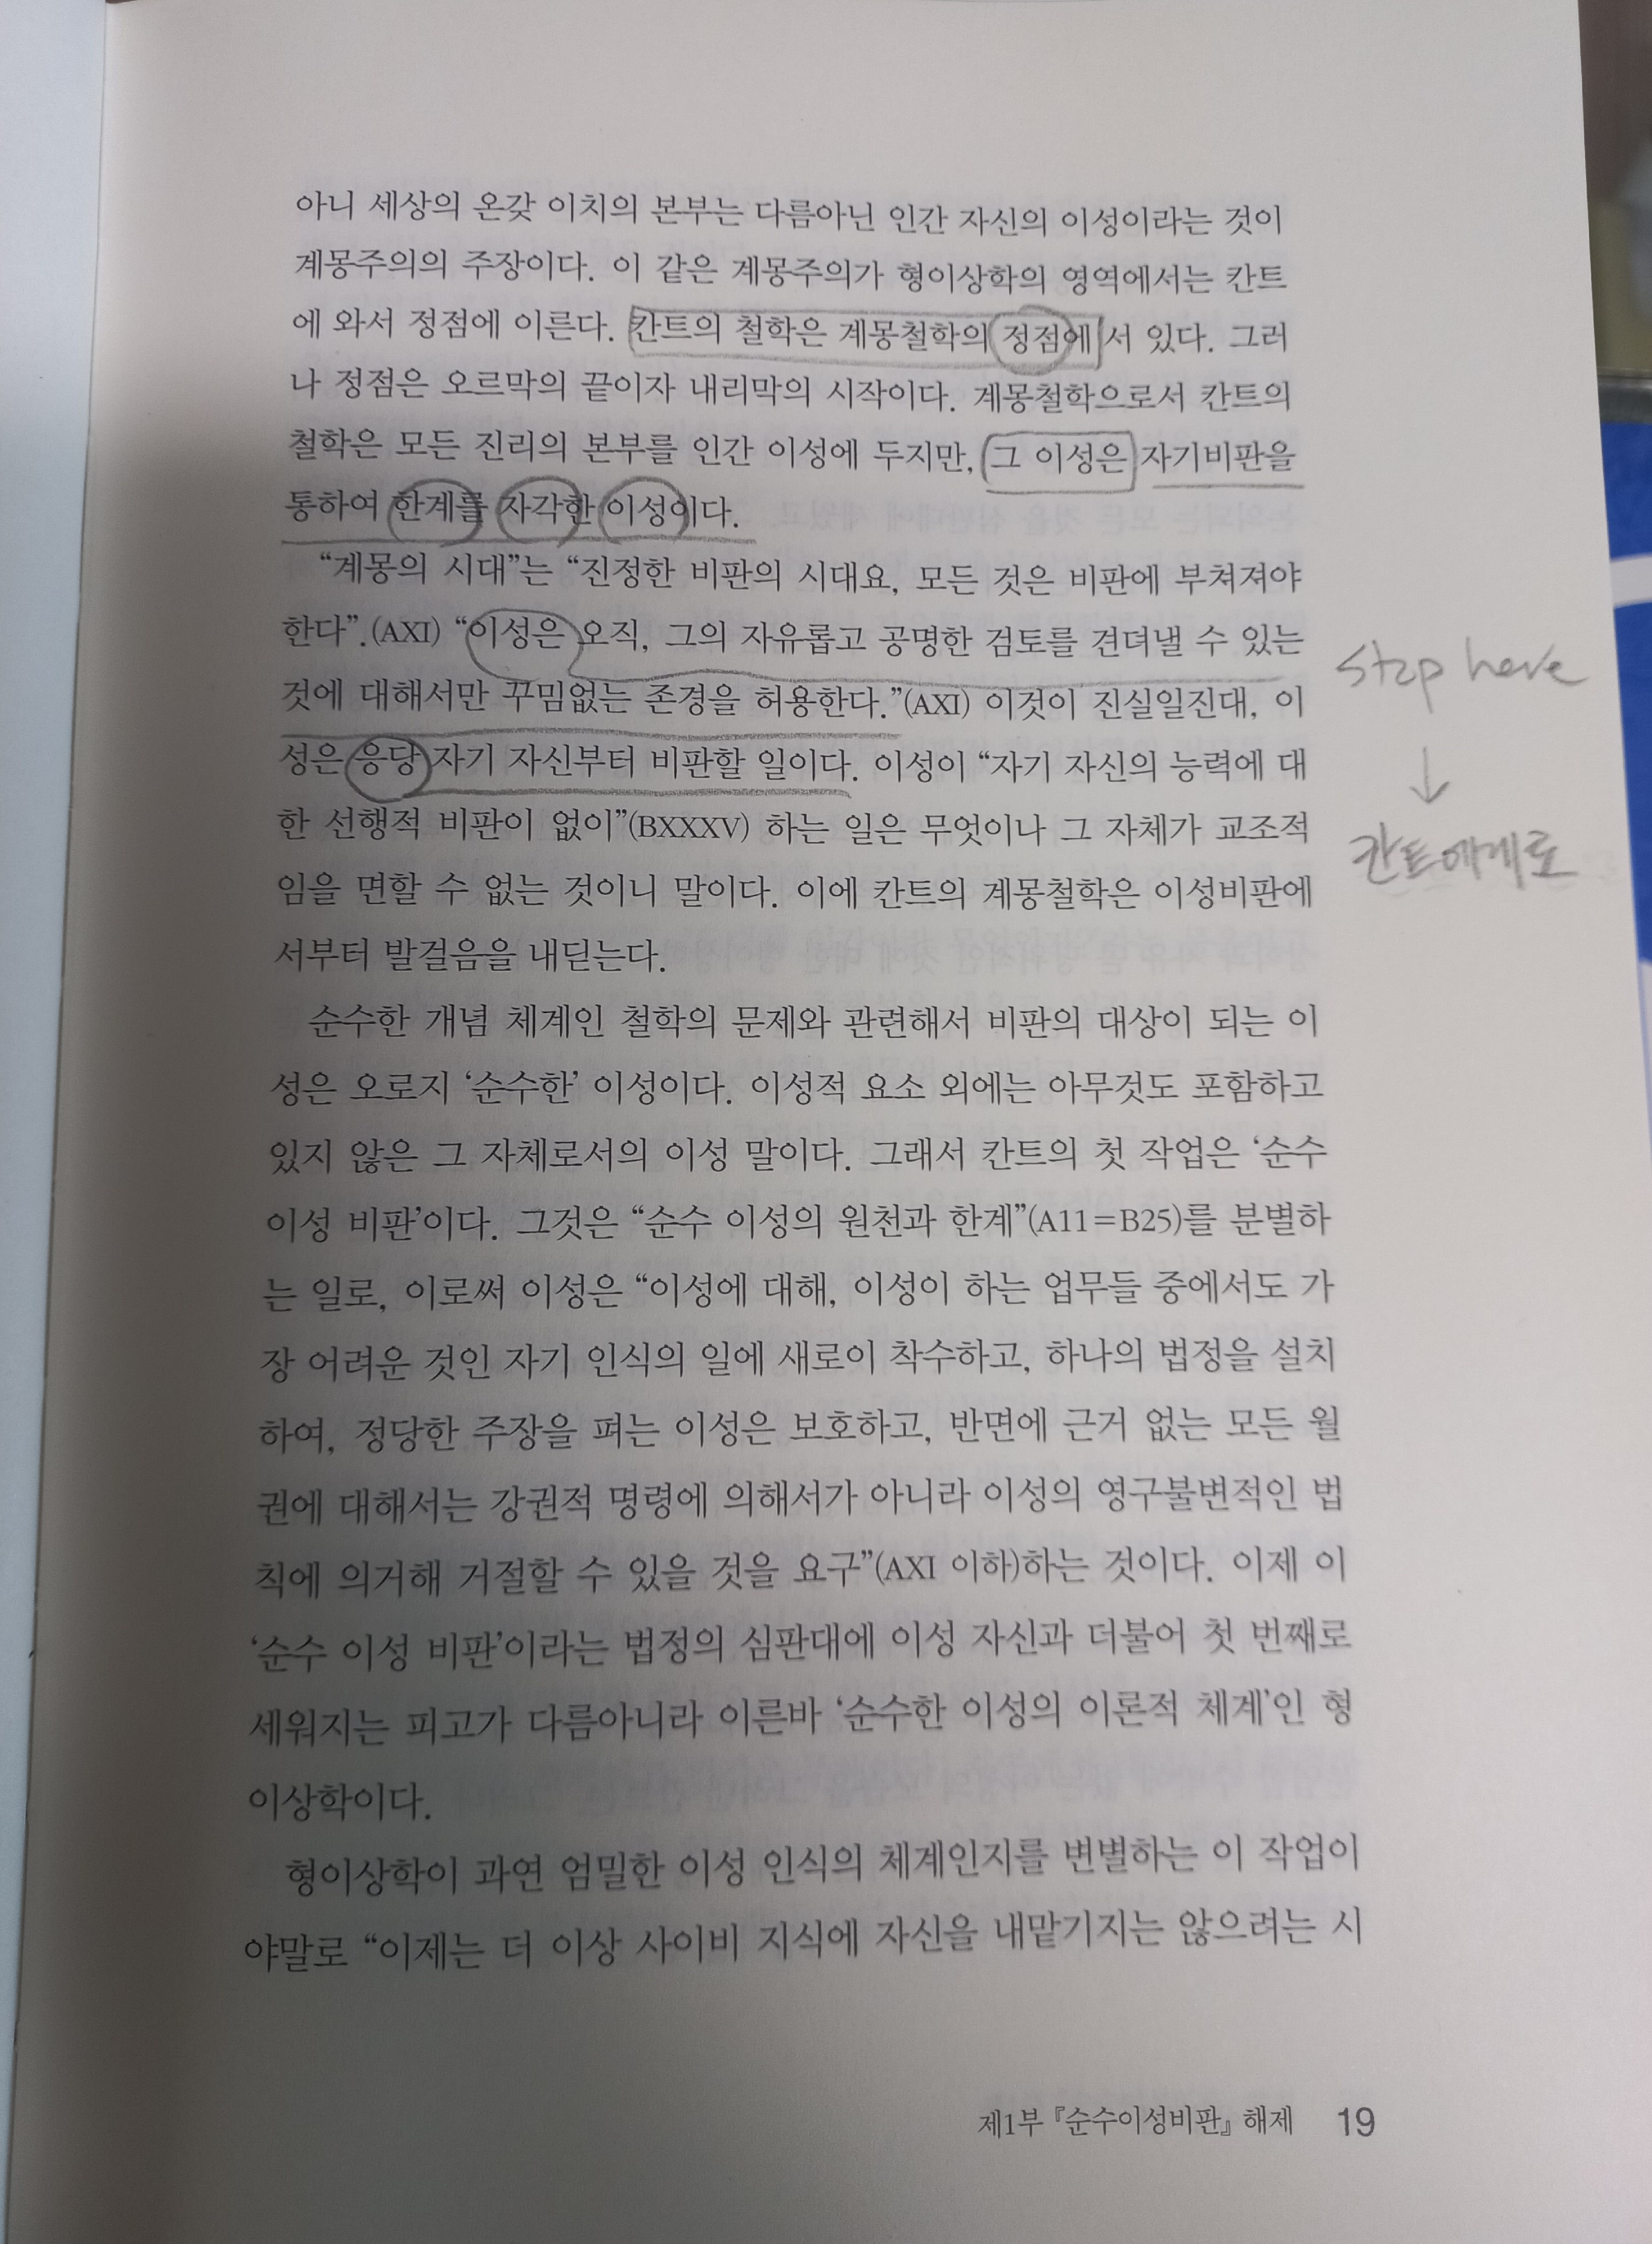 아니 세상의 온갖 이치의 본부는 다름아닌 인간 자신의 이성이라는 것이
계몽주의의 주장이다. 이 같은 계몽주의가 형이상학의 영역에서는 칸트
에 와서 정점에 이른다. 칸트의 철학은 계몽철학의 정점에 서 있다. 그러
나 정점은 오르막의 끝이자 내리막의 시작이다. 계몽철학으로서 칸트의
철학은 모든 진리의 본부를 인간 이성에 두지만, 그 이성은 자기비판을
통하여 한계를 자각한 이성이다.
“계몽의 시대”는 “진정한 비판의 시대요, 모든 것은 비판에 부쳐져야
한다”.(AXI) “이성은 오직, 그의 자유롭고 공명한 검토를 견뎌낼 수 있는
것에 대해서만 꾸밈없는 존경을 허용한다.”(AXI) 이것이 진실일진대, 이
성은 응당 자기 자신부터 비판할 일이다. 이성이 “자기 자신의 능력에 대
한 선행적 비판이 없이”(BXXXV) 하는 일은 무엇이나 그 자체가 교조적
임을 면할 수 없는 것이니 말이다. 이에 칸트의 계몽철학은 이성비판에
서부터 발걸음을 내딛는다.
순수한 개념 체계인 철학의 문제와 관련해서 비판의 대상이 되는 이
성은 오로지 ‘순수한’ 이성이다. 이성적 요소 외에는 아무것도 포함하고
있지 않은 그 자체로서의 이성 말이다. 그래서 칸트의 첫 작업은 ‘순수
이성 비판’이다. 그것은 “순수 이성의 원천과 한계”(A11=B25)를 분별하
는 일로, 이로써 이성은 “이성에 대해, 이성이 하는 업무들 중에서도 가
장 어려운 것인 자기 인식의 일에 새로이 착수하고, 하나의 법정을 설치
하여, 정당한 주장을 펴는 이성은 보호하고, 반면에 근거 없는 모든 월
권에 대해서는 강권적 명령에 의해서가 아니라 이성의 영구불변적인 법
칙에 의거해 거절할 수 있을 것을 요구”(AXI 이하)하는 것이다. 이제 이
‘순수 이성 비판’이라는 법정의 심판대에 이성 자신과 더불어 첫 번째로
세워지는 피고가 다름아니라 이른바 ‘순수한 이성의 이론적 체계’인 형
이상학이다.
형이상학이 과연 엄밀한 이성 인식의 체계인지를 변별하는 이 작업이
야말로 “이제는 더 이상 사이비 지식에 자신을 내맡기지는 않으려는 시
stop here
↓
칸트에게로
제1부 『순수이성비판』 해제 19